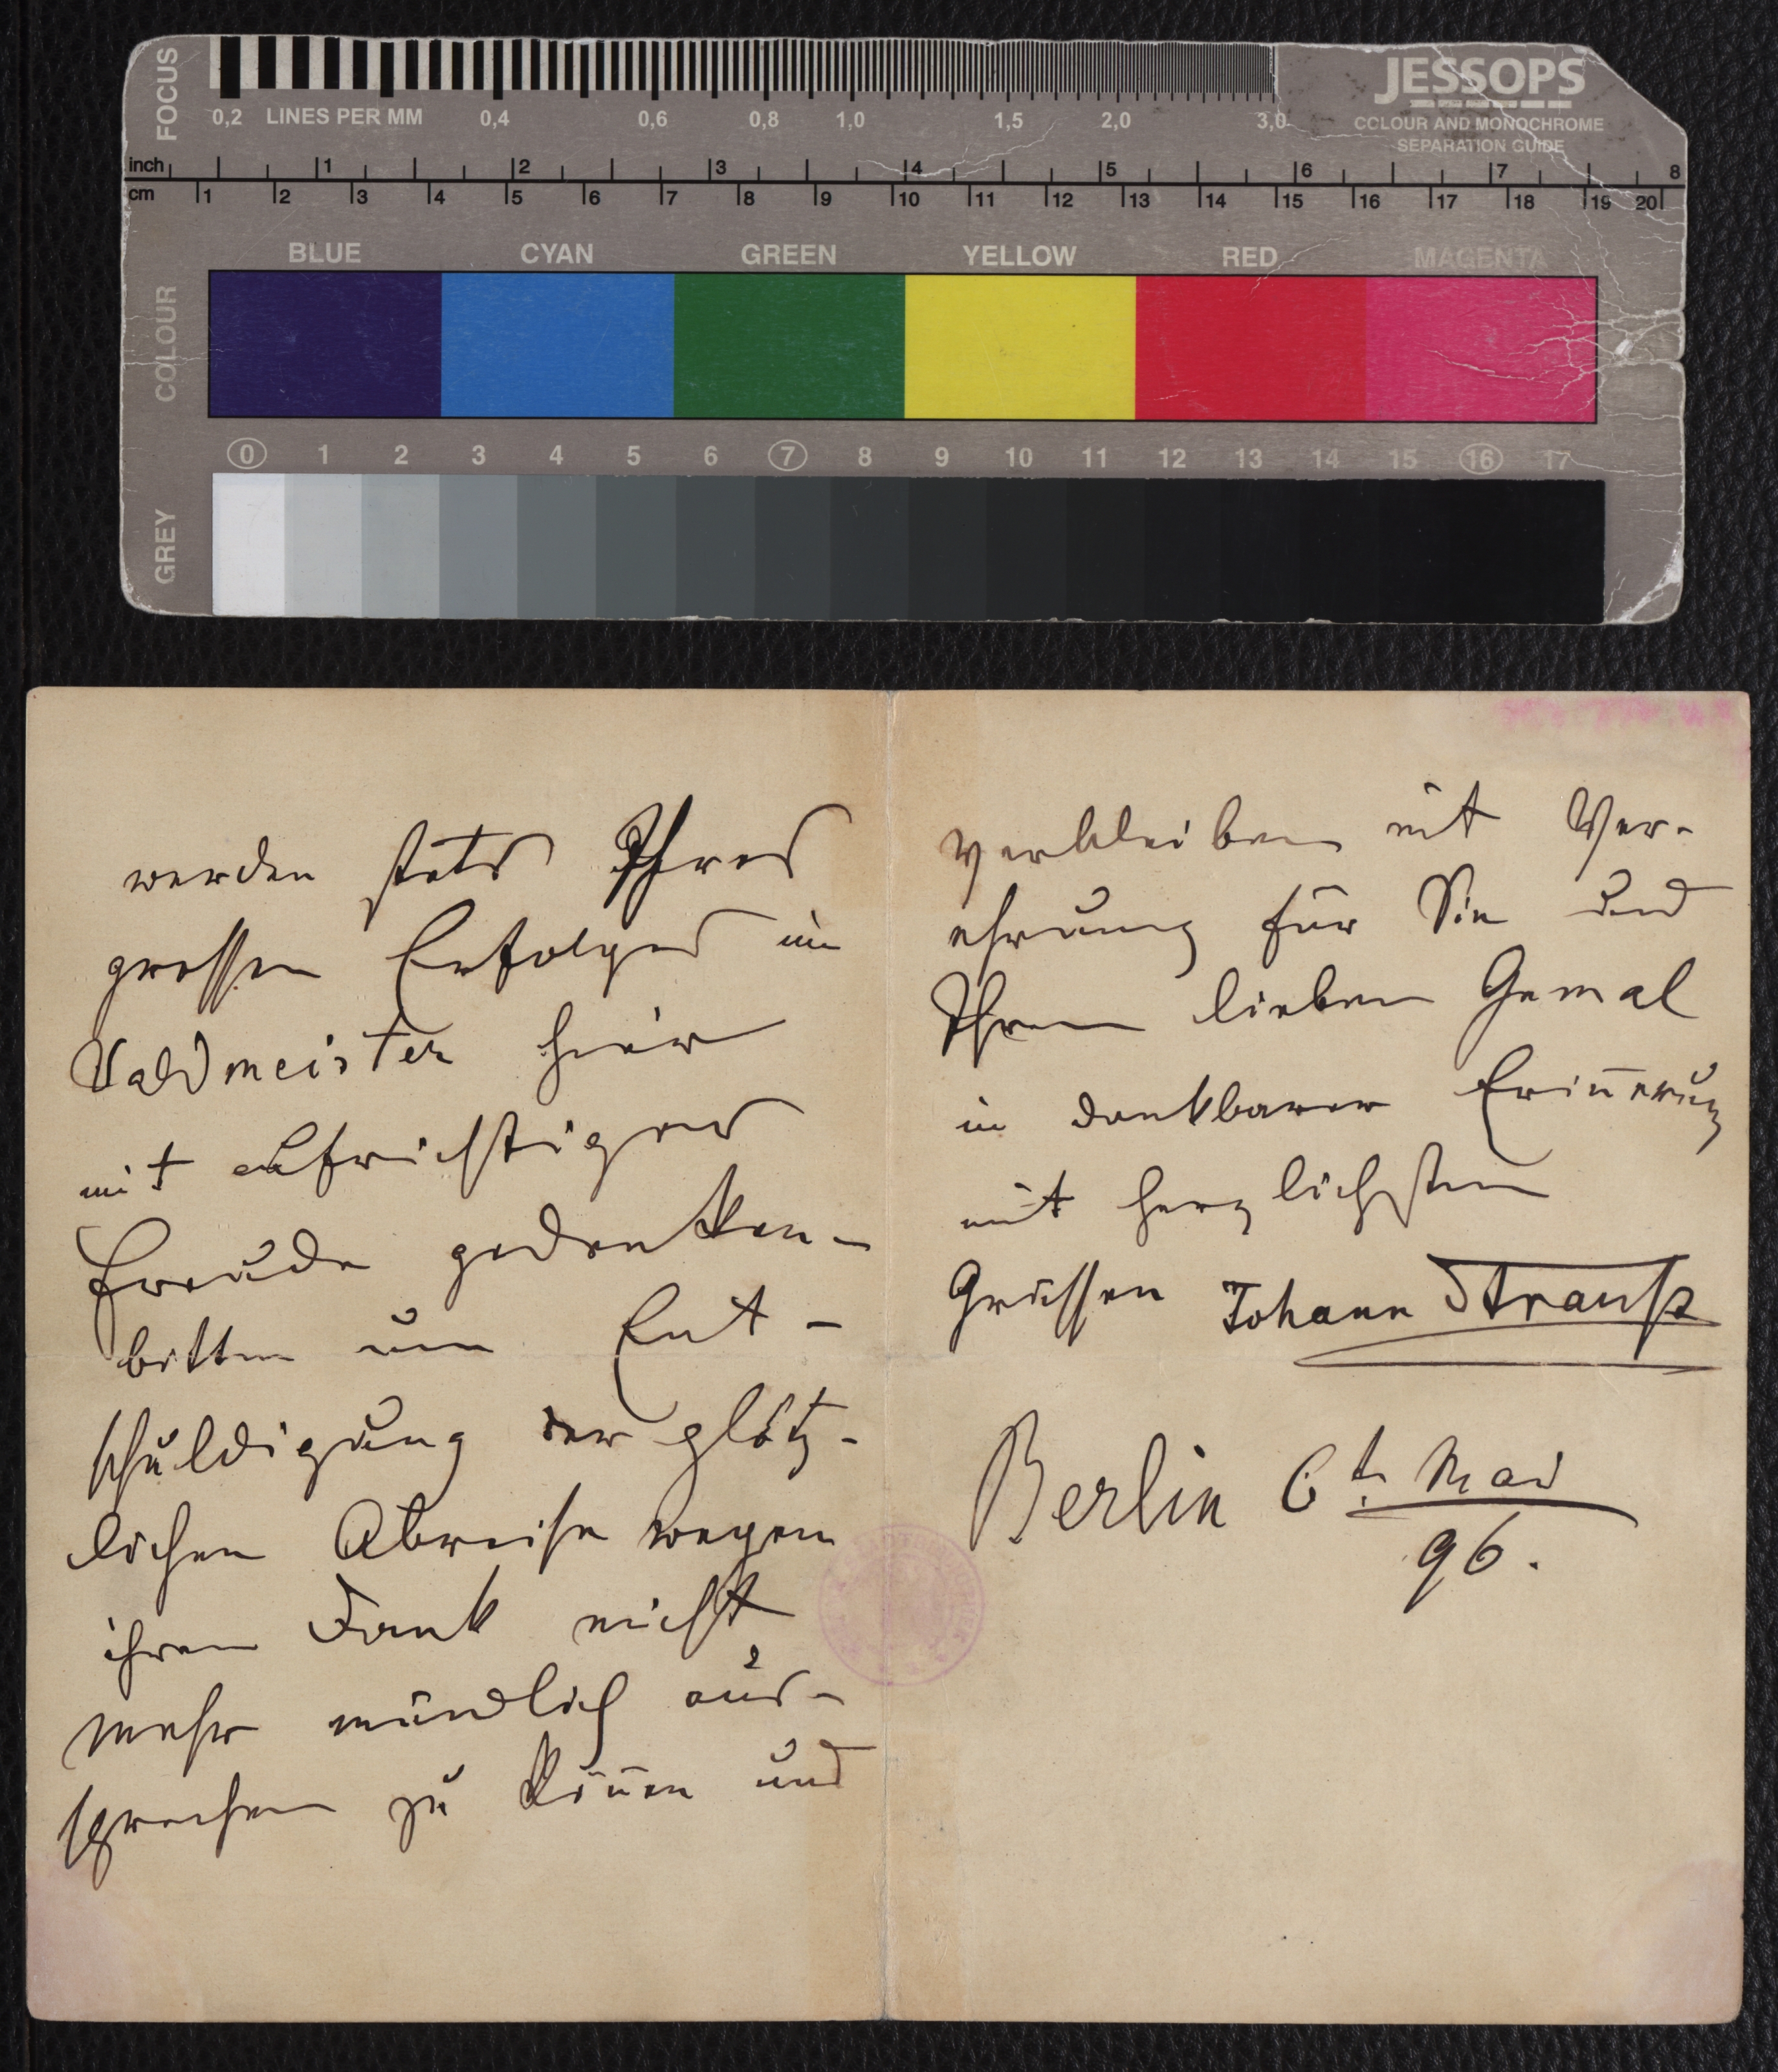 FOCUS
0,2 LINES PER MM 0,4 0,6 0,8 1,0 1,5 2,0 3,0
JESSOPS
COLOUR AND MONOCHROME
SEPARATION GUIDE
inch 1 2 3 4 5 6 7 8
cm 1 2 3 4 5 6 7 8 9 10 11 12 13 14 15 16 17 18 19 20
BLUE CYAN GREEN YELLOW RED MAGENTA
COLOUR
0 1 2 3 4 5 6 7 8 9 10 11 12 13 14 15 16 17
GREY
werden stets Ihres
grossen Erfolges im
Waldmeister hier
mit aufrichtiger
Freude gedenken –
bitten um Ent –
schuldigung der plötz –
lichen Abreise wegen
ihren Dank nicht
mehr mündlich aus –
sprechen zu köñen und
verbleiben mit Ver –
ehrung für Sie und
Ihren lieben Gemal
in dankbarer Eriñerung
mit herzlichsten
Grüssen Johann Strauß
Berlin 6t. Mai
96.